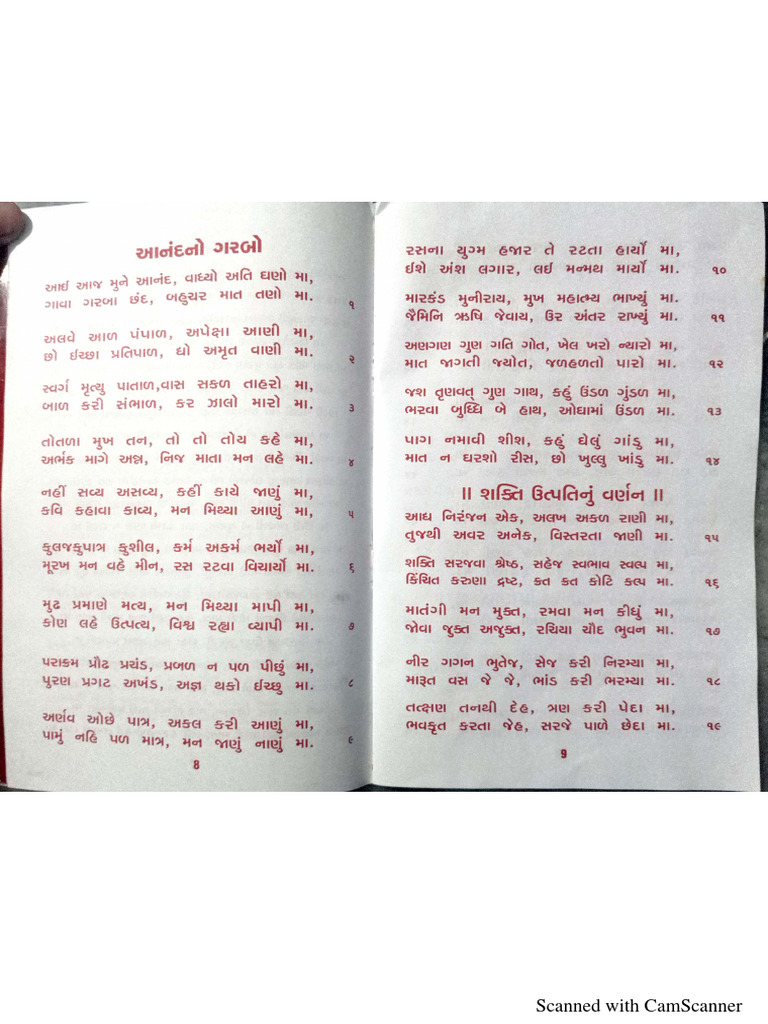 આનંદનો ગરબો
આઈ આજ મુને આનંદ, વાધ્યો અતિ ઘણો મા,
ગાવા ગરબા છંદ, બહુચર માત તણો મા. ૧
અલવે આળ પંપાળ, અપેક્ષા આણી મા,
છો ઈચ્છા પ્રતિપાળ, દ્યો અમૃત વાણી મા. ૨
સ્વર્ગ મૃત્યુ પાતાળ,વાસ સકળ તાહરો મા,
બાળ કરી સંભાળ, કર ઝાલો મારો મા. ૩
તોતળા મુખ તન, તો તો તોય કહે મા,
અર્ભક માગે અન્ન, નિજ માતા મન લહે મા. ૪
નહીં સવ્ય અસવ્ય, કહીં કાયે જાણું મા,
કવિ કહાવા કાવ્ય, મન મિથ્યા આણું મા. ૫
કુલજકુપાત્ર કુશીલ, કર્મ અકર્મ ભર્યો મા,
મૂરખ મન વહે મીન, રસ રટવા વિચાર્યો મા. ૬
મુઢ પ્રમાણે મત્ય, મન મિથ્યા માપી મા,
કોણ લહે ઉત્પત્ય, વિશ્વ રહ્યા વ્યાપી મા. ૭
પરાક્રમ પ્રૌઢ પ્રચંડ, પ્રબળ ન પળ પીછું મા,
પુરણ પ્રગટ અખંડ, અજ્ઞ થકો ઈચ્છુ મા. ૮
અર્ણવ ઓછે પાત્ર, અકલ કરી આણું મા,
પામું નહિ પળ માત્ર, મન જાણું નાણું મા. ૯
8
રસના યુગ્મ હજાર તે રટતા હાર્યો મા,
ઈશે અંશ લગાર, લઈ મન્મથ માર્યો મા. ૧૦
મારકંડ મુનીરાય, મુખ મહાત્મ્ય ભાખ્યું મા,
જૈમિનિ ઋષિ જેવાય, ઉર અંતર રાખ્યું મા. ૧૧
અણગણ ગુણ ગતિ ગોત, ખેલ ખરો ન્યારો મા,
માત જાગતી જ્યોત, જળહળતો પારો મા. ૧૨
જશ તૃણવત્ ગુણ ગાથ, કહું ઉંડળ ગુંડળ મા,
ભરવા બુધ્ધિ બે હાથ, ઓઘામાં ઉંડળ મા. ૧૩
પાગ નમાવી શીશ, કહું ઘેલું ગાંડુ મા,
માત ન ધરશો રીસ, છો ખુલ્લુ ખાંડુ મા. ૧૪
॥ શક્તિ ઉત્પતિનું વર્ણન ॥
આદ્ય નિરંજન એક, અલખ અકળ રાણી મા,
તુજથી અવર અનેક, વિસ્તરતા જાણી મા. ૧૫
શક્તિ સરજવા શ્રેષ્ઠ, સહેજ સ્વભાવ સ્વલ્પ મા,
કિંચિત કરુણા દ્રષ્ટ, કત કત કોટિ કલ્પ મા. ૧૬
માતંગી મન મુક્ત, રમવા મન કીધું મા,
જોવા જુક્ત અજુક્ત, રચિયા ચૌદ ભુવન મા. ૧૭
નીર ગગન ભુતેજ, સેજ કરી નિરમ્યા મા,
મારૂત વસ જે જે, ભાંડ કરી ભરમ્યા મા. ૧૮
તત્ક્ષણ તનથી દેહ, ત્રણ કરી પેદા મા,
ભવકૃત કરતા જેહ, સરજે પાળે છેદા મા. ૧૯
9
Scanned with CamScanner